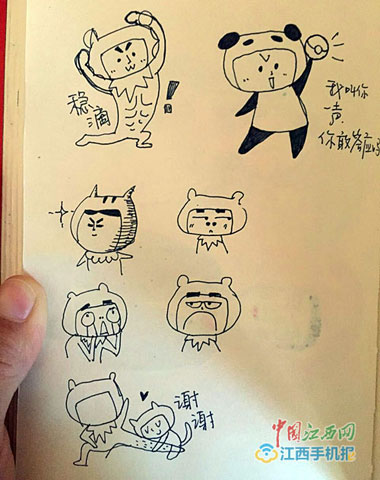 稳
滴
我叫你
一声
你敢答应吗
谢
谢
中国江西网
江西手机报